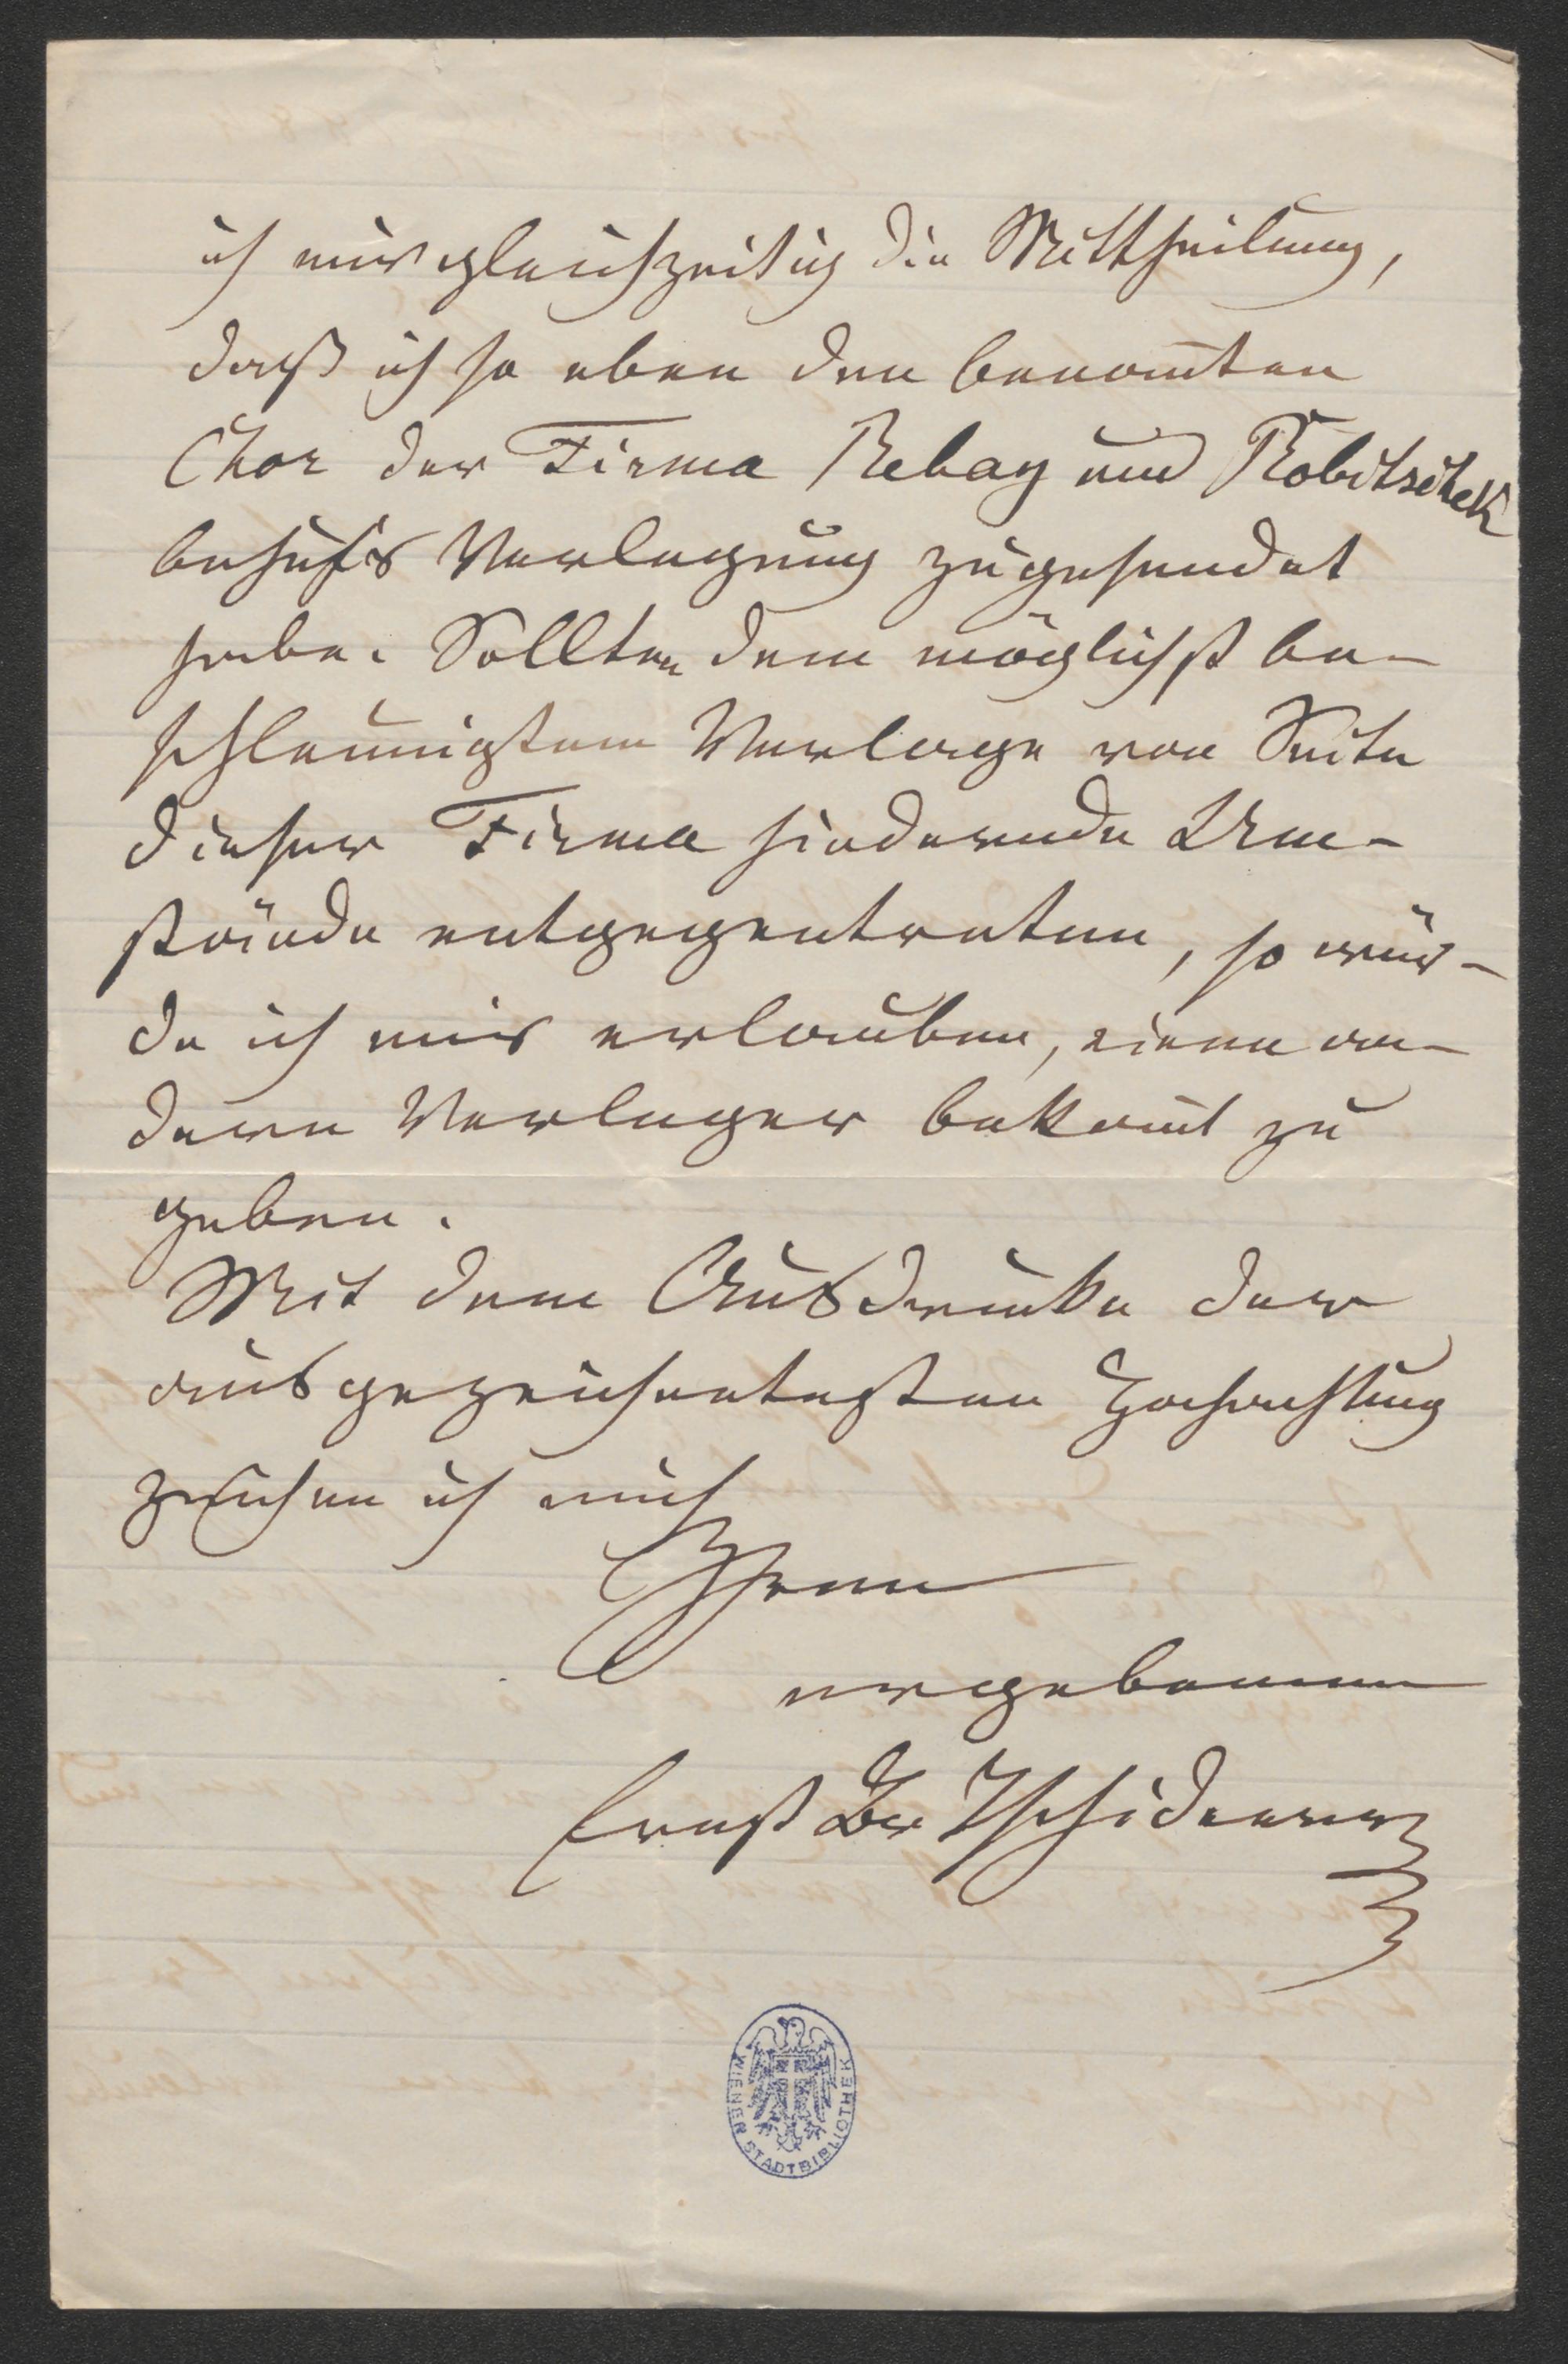 ich mir gleichzeitig die Mittheilung,
daß ich so eben den benañten
Chor der Firma Rebay und Robitschek
behufs Verlegung zugesendet
habe. Sollten dem möglichst be-
schleunigtem Verlage von Seite
dieser Firma hindernde Um-
stände entgegentreten, so wür-
de ich mir erlauben, einen an-
dern Verleger bekañt zu
geben.
Mit dem Ausdrucke der
ausgezeichnetesten Hochachtung
zeichne ich mich
Ihnen
ergebenen
Ernst Br Tschiderer
WIENER STADTBIBLIOTHEK